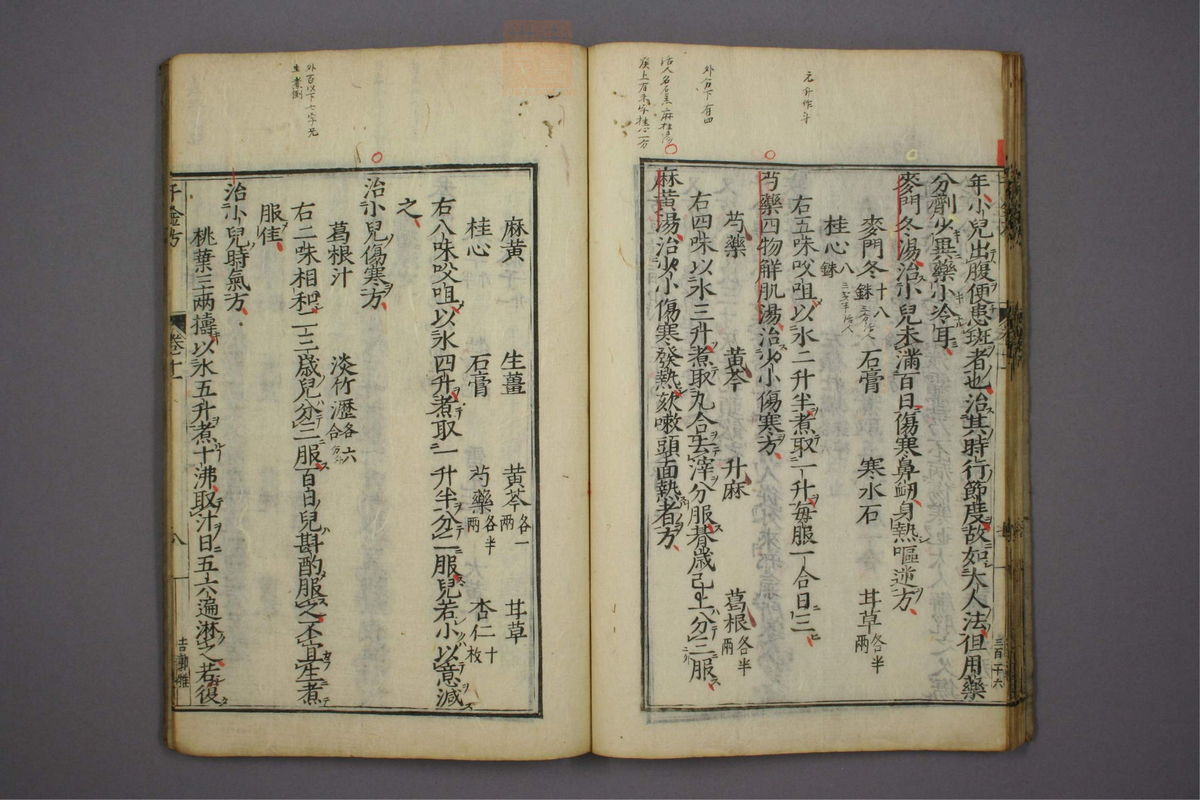 元升作斗
外分下有四
年小兒出腹便患斑者也治其時行節度故如大人法但用藥
分劑少異藥小冷耳
麥門冬湯治小兒未滿百日傷寒鼻衂身熱嘔逆方
麥門冬十八銖 石膏 寒水石 甘草各半兩
桂心八銖
右五味㕮咀以水二升半煮取一升每服一合日三
芍藥四物解肌湯治少小傷寒方
芍藥 黃芩 升麻 葛根各半兩
右四味以水三升煮取九合去滓分服朞歲已上分三服
麻黃湯治少小傷寒發熱欬嗽頭面熱者方
外百以下七字无
生煮倒
麻黃 生薑 黃芩各一兩 甘草
桂心 石膏 芍藥各半兩 杏仁十枚
右八味㕮咀以水四升煮取一升半分二服兒若小以意減
之
治小兒傷寒方
葛根汁 淡竹瀝各六合
右二味相和二三歲兒分三服百日兒斟酌服之不宜生煮
服佳
治小兒時氣方
桃葉三兩擣以水五升煮十沸取汁日五六遍淋之若復
千金方
卷十一
八